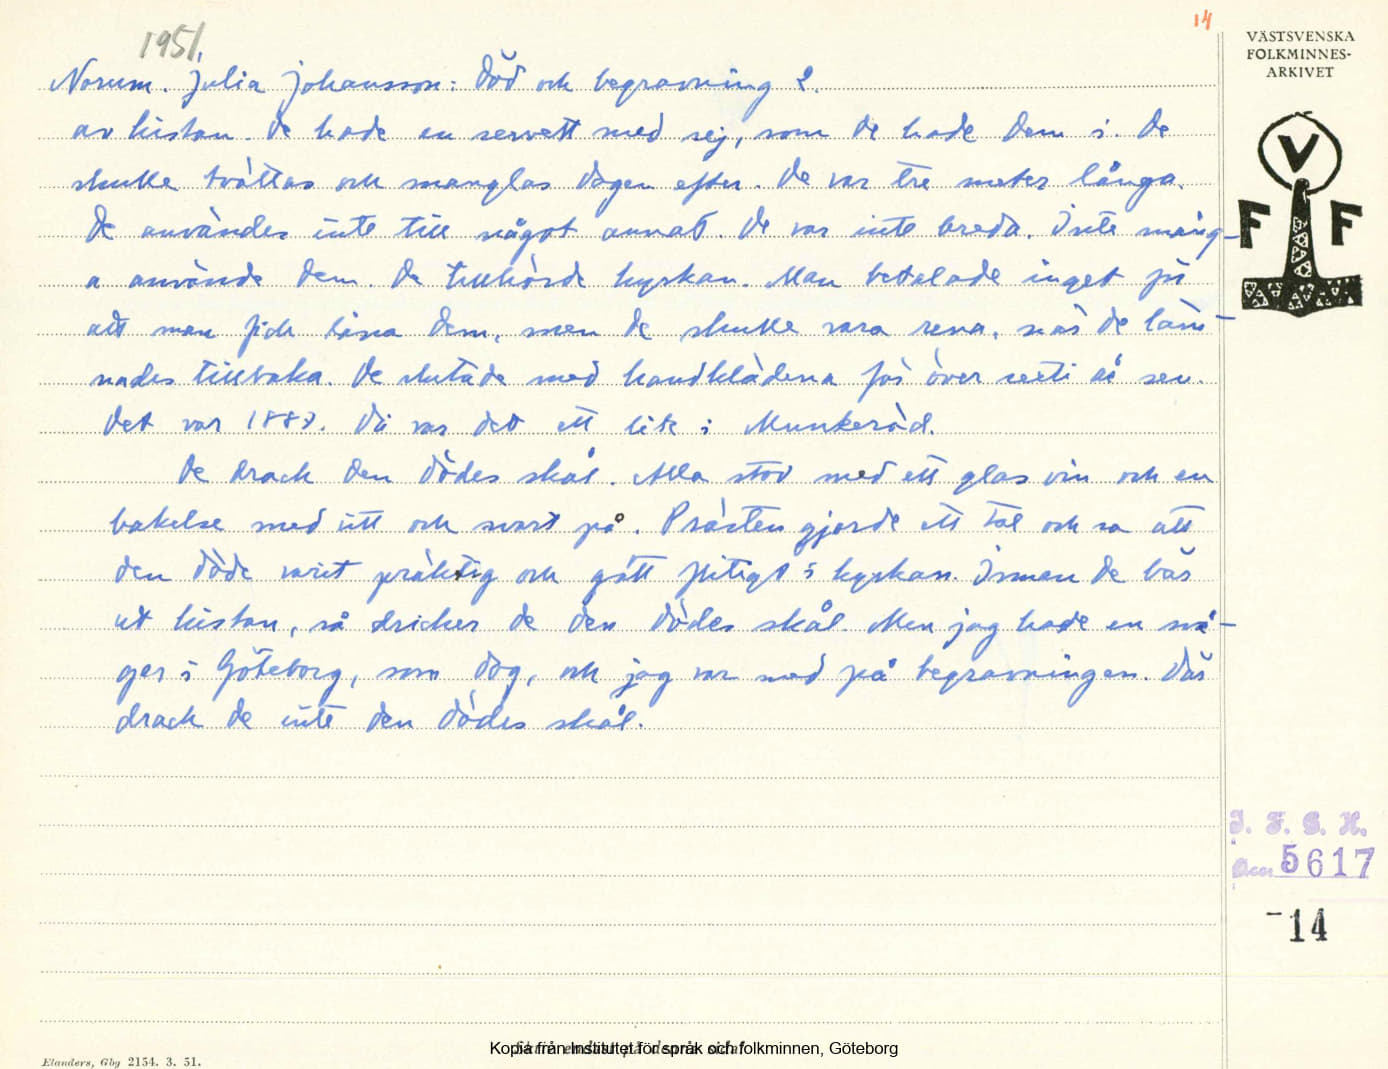 14
1951.
VÄSTSVENSKA
FOLKMINNES-
ARKIVET
Norum. Julia Johansson: Död och begravning 2.
av kistan. De hade en servett med sej, som de hade dem i. De
skulle tvättas och manglas dagen efter. De var tre meter långa.
De användes inte till något annat. De var inte breda. Inte mång-
a använde dem. De tillhörde kyrkan. Man betalade inget för
att man fick låna dem, men de skulle vara rena, när de läm-
nades tillbaka. De slutade med handklädena för över sexti år sen.
Det var 1887. Då var det ett lik i Munkeröd.
De drack den dödes skål. Alla stod med ett glas vin och en
bakelse med vitt och svart på. Prästen gjorde ett tal och sa att
den döde varit präktig och gått flitigt i kyrkan. Innan de bär
ut kistan, så dricker de den dödes skål. Men jag hade en svå-
ger i Göteborg, som dog, och jag var med på begravningen. Där
drack de inte den dödes skål.
V
F F
I. F. G. H.
Acc 5617
-14
Elanders, Gbg 2154. 3. 51.
Kopia från Institutet för språk och folkminnen, Göteborg